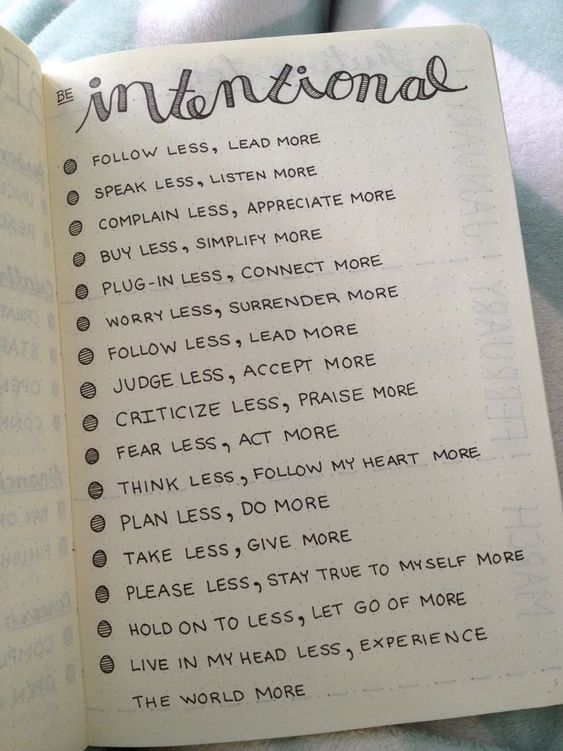 BE intentional
FOLLOW LESS, LEAD MORE
SPEAK LESS, LISTEN MORE
COMPLAIN LESS, APPRECIATE MORE
BUY LESS, SIMPLIFY MORE
PLUG-IN LESS, CONNECT MORE
WORRY LESS, SURRENDER MORE
FOLLOW LESS, LEAD MORE
JUDGE LESS, ACCEPT MORE
CRITICIZE LESS, PRAISE MORE
FEAR LESS, ACT MORE
THINK LESS, FOLLOW MY HEART MORE
PLAN LESS, DO MORE
TAKE LESS, GIVE MORE
PLEASE LESS, STAY TRUE TO MYSELF MORE
HOLD ON TO LESS, LET GO OF MORE
LIVE IN MY HEAD LESS, EXPERIENCE
THE WORLD MORE
JANUARY
FEBRUARY
MARCH